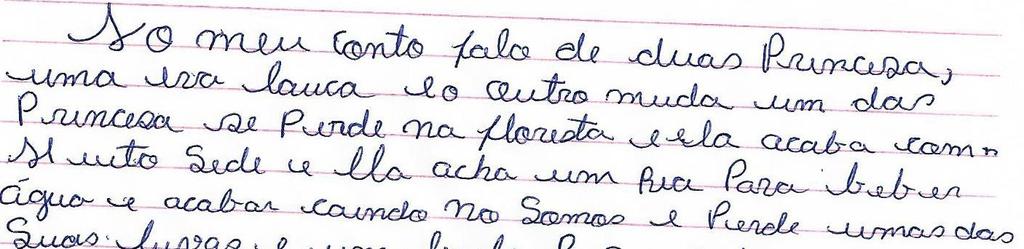 No meu conto falo de duas Princesa,
uma era lauca e o outro muda um das
Princesa se Perde na floresta e ela acaba com
Muito Sede e Ela acha um Ria Para beber
água e acabar caindo no Somos e Perde umas das
Suas